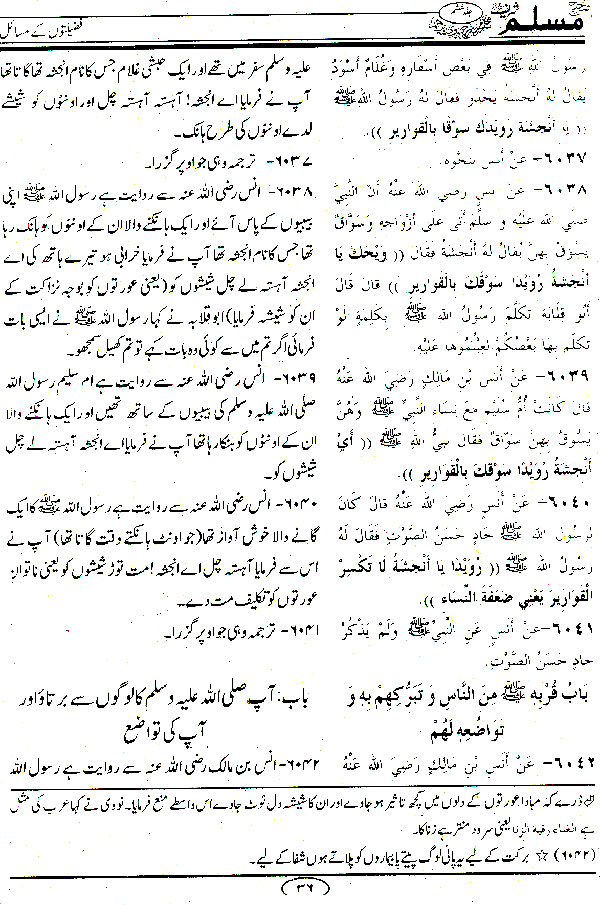 فضیلتوں کے مسائل
مسلم
رسول الله ﷺ في بعض أسفاره وغلام أسود
يقال له أنجشة يحدو فقال له رسول الله ﷺ
(( يا أنجشة رويدك سوقا بالقوارير )).
٦٠٣٧- عَنْ أَنَسٍ بِنَحْوِهِ.
٦٠٣٨- عَنْ أنس رضي الله عنه أن النبي
صلى الله عليه و سلم أتى على أزواجه وسواق
يسوق بهن يقال له أنجشة فقال (( ويحك يا
أنجشة رويدا سوقك بالقوارير )) قال قال
أبو قلابة تكلم رسول الله ﷺ بكلمة لو
تكلم بها بعضكم لعبتموها عليه.
٦٠٣٩- عن أنس بن مالك رضي الله عنه
قال كانت أم سليم مع نساء النبي ﷺ وهن
يسوق بهن سواق فقال نبي الله ﷺ (( أي
أنجشة رويدا سوقك بالقوارير )).
٦٠٤٠- عن أنس رضي الله عنه قال كان
لرسول الله ﷺ حاد حسن الصوت فقال له
رسول الله ﷺ (( رويدا يا أنجشة لا تكسر
القوارير يعني ضعفة النساء )).
٦٠٤١- عن أنس عن النبي ﷺ ولم يذكر
حاد حسن الصوت.
باب قربه ﷺ من الناس و تبركهم به و
تواضعه لهم
٦٠٤٢- عن أنس بن مالك رضي الله عنه
علیہ وسلم سفر میں تھے اور ایک حبشی غلام جس کا نام انجشہ تھا گاتا تھا
آپ نے فرمایا اے انجشہ! آہستہ آہستہ چل اور اونٹوں کو شیشے
لدے اونٹوں کی طرح ہانک۔
۶۰۳۷- ترجمہ وہی جو اوپر گزرا۔
۶۰۳۸- انس رضی اللہ عنہ سے روایت ہے رسول اللہ ﷺ اپنی
بیبیوں کے پاس آئے اور ایک ہانکنے والا ان کے اونٹوں کو ہانک رہا
تھا جس کا نام انجشہ تھا آپ نے فرمایا خرابی ہو تیرے ہاتھ کی اے
انجشہ آہستہ لے چل شیشوں کو (یعنی عورتوں کو بوجہ نزاکت کے
ان کو شیشہ فرمایا) ابوقلابہ نے کہا رسول اللہ ﷺ نے ایسی بات
فرمائی اگر تم میں سے کوئی وہ بات کہے تو تم کھیل سمجھو۔
۶۰۳۹- انس رضی اللہ عنہ سے روایت ہے ام سلیم رسول اللہ
صلی اللہ علیہ وسلم کی بیبیوں کے ساتھ تھیں اور ایک ہانکنے والا
ان کے اونٹوں کو ہنکا رہا تھا آپ نے فرمایا اے انجشہ آہستہ لے چل
شیشوں کو۔
۶۰۴۰- انس رضی اللہ عنہ سے روایت ہے رسول اللہ ﷺ کا ایک
گانے والا خوش آواز تھا (جو اونٹ ہانکتے وقت گاتا تھا) آپ نے
اس سے فرمایا آہستہ چل اے انجشہ! مت توڑ شیشوں کو یعنی ناتواں
عورتوں کو تکلیف مت دے۔
۶۰۴۱- ترجمہ وہی جو اوپر گزرا۔
باب: آپ صلی اللہ علیہ وسلم کا لوگوں سے برتاؤ اور
آپ کی تواضع
۶۰۴۲- انس بن مالک رضی اللہ عنہ سے روایت ہے رسول اللہ
ڈرے کہ مبادا عورتوں کے دلوں میں کچھ تاثیر ہو جاوے اور ان کا شیشہ دل ٹوٹ جاوے اس واسطے منع فرمایا۔ نووی نے کہا عرب کی مثل
ہے الغناء رقية الزنا یعنی سرود منتر ہے زنا کا۔
(۶۰۴۲) ☆ برکت کے لیے یہ پانی لوگ پیتے یا بیماروں کو پلاتے ہوں شفا کے لیے۔
۳۶